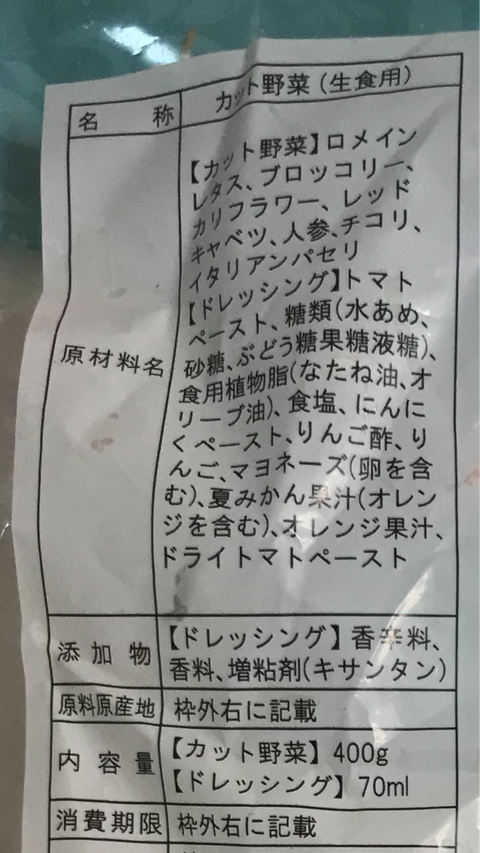 名称 カット野菜(生食用)
原材料名
【カット野菜】ロメイン
レタス、ブロッコリー、
カリフラワー、レッド
キャベツ、人参、チコリ、
イタリアンパセリ
【ドレッシング】トマト
ペースト、糖類(水あめ、
砂糖、ぶどう糖果糖液糖)、
食用植物脂(なたね油、オ
リーブ油)、食塩、にんに
くペースト、りんご酢、り
んご、マヨネーズ(卵を含
む)、夏みかん果汁(オレン
ジを含む)、オレンジ果汁、
ドライトマトペースト
添加物
【ドレッシング】香辛料、
香料、増粘剤(キサンタン)
原料原産地 枠外右に記載
内容量
【カット野菜】400g
【ドレッシング】70ml
消費期限 枠外右に記載